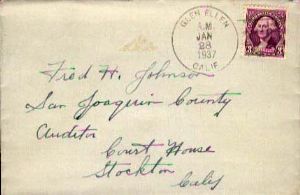 GLEN ELLEN
A.M.
JAN
28
1937
CALIF.
3
3
Fred H. Johnson
San Joaquin County
Auditor
Court House
Stockton
Calif